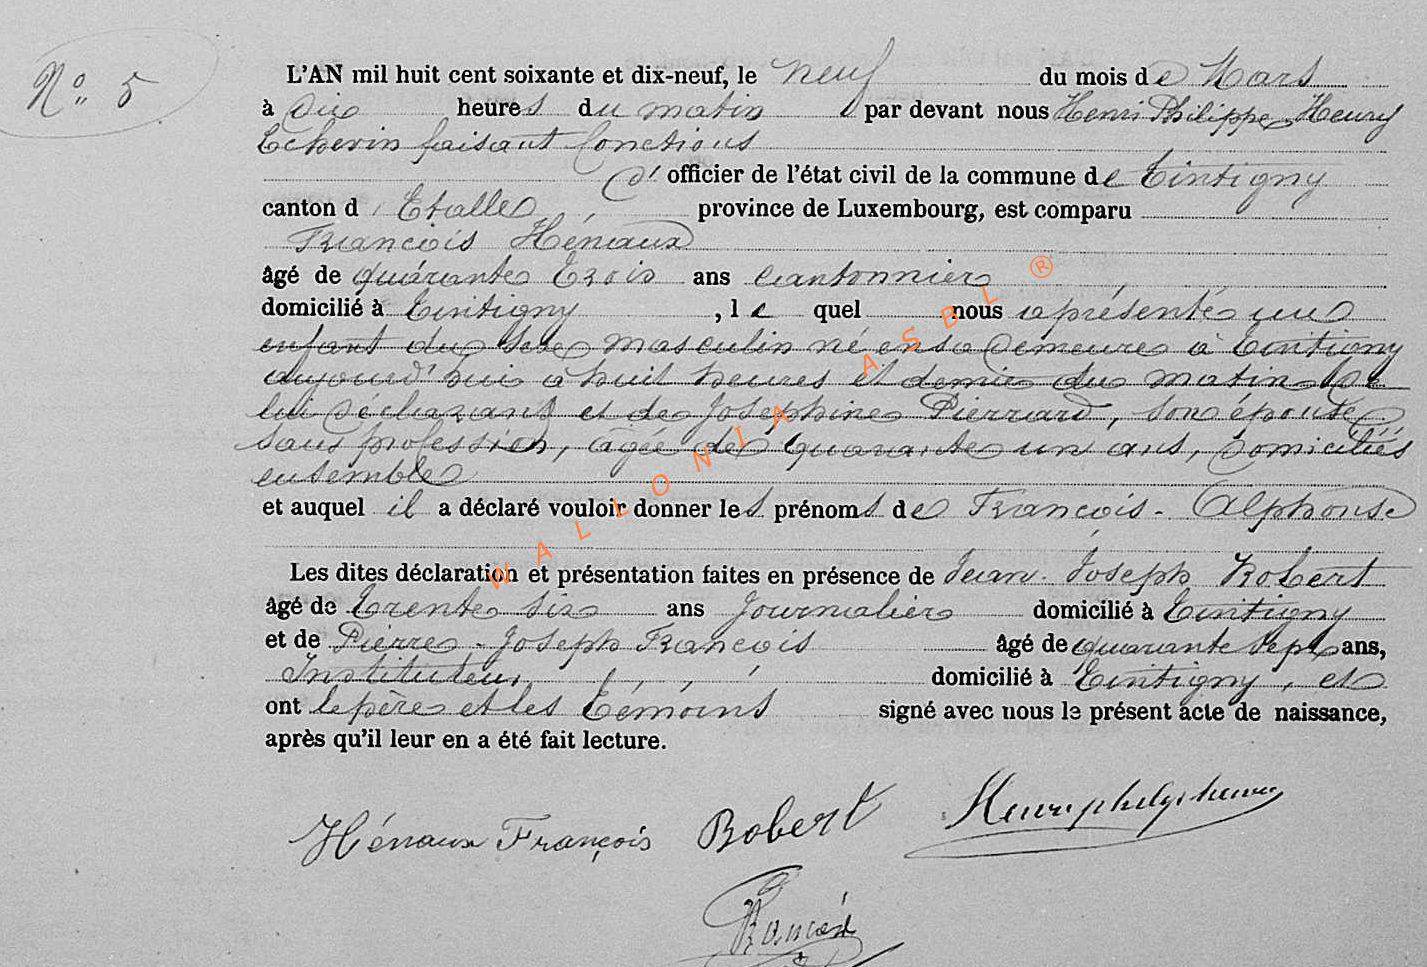 N° 5
L'AN mil huit cent soixante et dix-neuf, le neuf du mois de Mars
à dix heures du matin par devant nous Henri Philippe Henry
Echevin faisant fonctions
d' officier de l'état civil de la commune de Tintigny
canton d'Etalle, province de Luxembourg, est comparu
François Hénaux
âgé de quarante trois ans cantonnier
domicilié à Tintigny, le quel nous a présenté un
enfant du sexe masculin né en sa demeure à Tintigny
aujourd'hui à huit heures et demie du matin de
lui déclarant et de Joséphine Pierrard, son épouse
sans profession, âgée de quarante un ans, domiciliés
ensemble
et auquel il a déclaré vouloir donner les prénoms de François-Alphonse
Les dites déclaration et présentation faites en présence de Jean-Joseph Robert
âgé de trente six ans Journalier domicilié à Tintigny
et de Pierre-Joseph François âgé de quarante sept ans,
Instituteur, domicilié à Tintigny, et
ont le père et les témoins signé avec nous le présent acte de naissance,
après qu'il leur en a été fait lecture.
Hénaux François Robert
François
WALLONIA ASBL ®